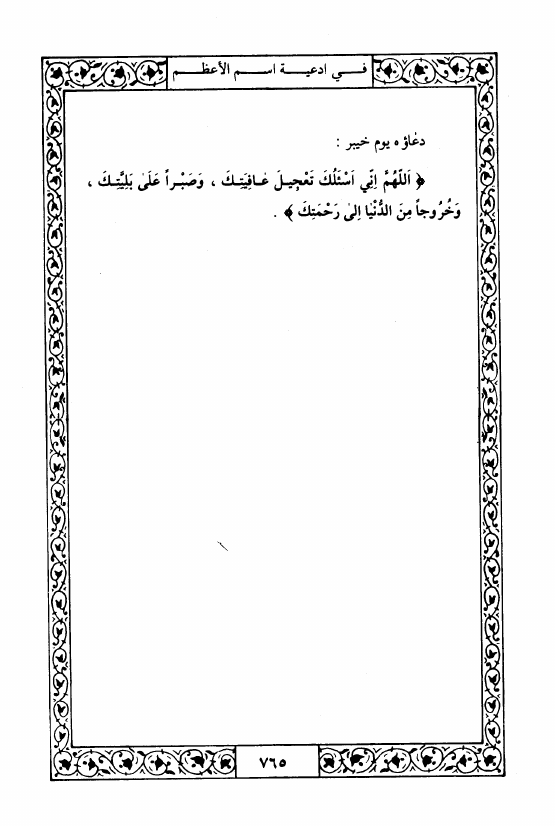 فـــي ادعيـــة اســـم الأعظـــم
دعاؤه يوم خيبر :
﴿ اَللّٰهُمَّ اِنّي اَسْئَلُكَ تَعْجيـلَ عٰـافِيَتِـكَ ، وَصَبْـراً عَلىٰ بَلِيَّتِـكَ ،
وَخُرُوجاً مِنَ الدُّنْيٰا اِلىٰ رَحْمَتِكَ ﴾ .
٧٦٥